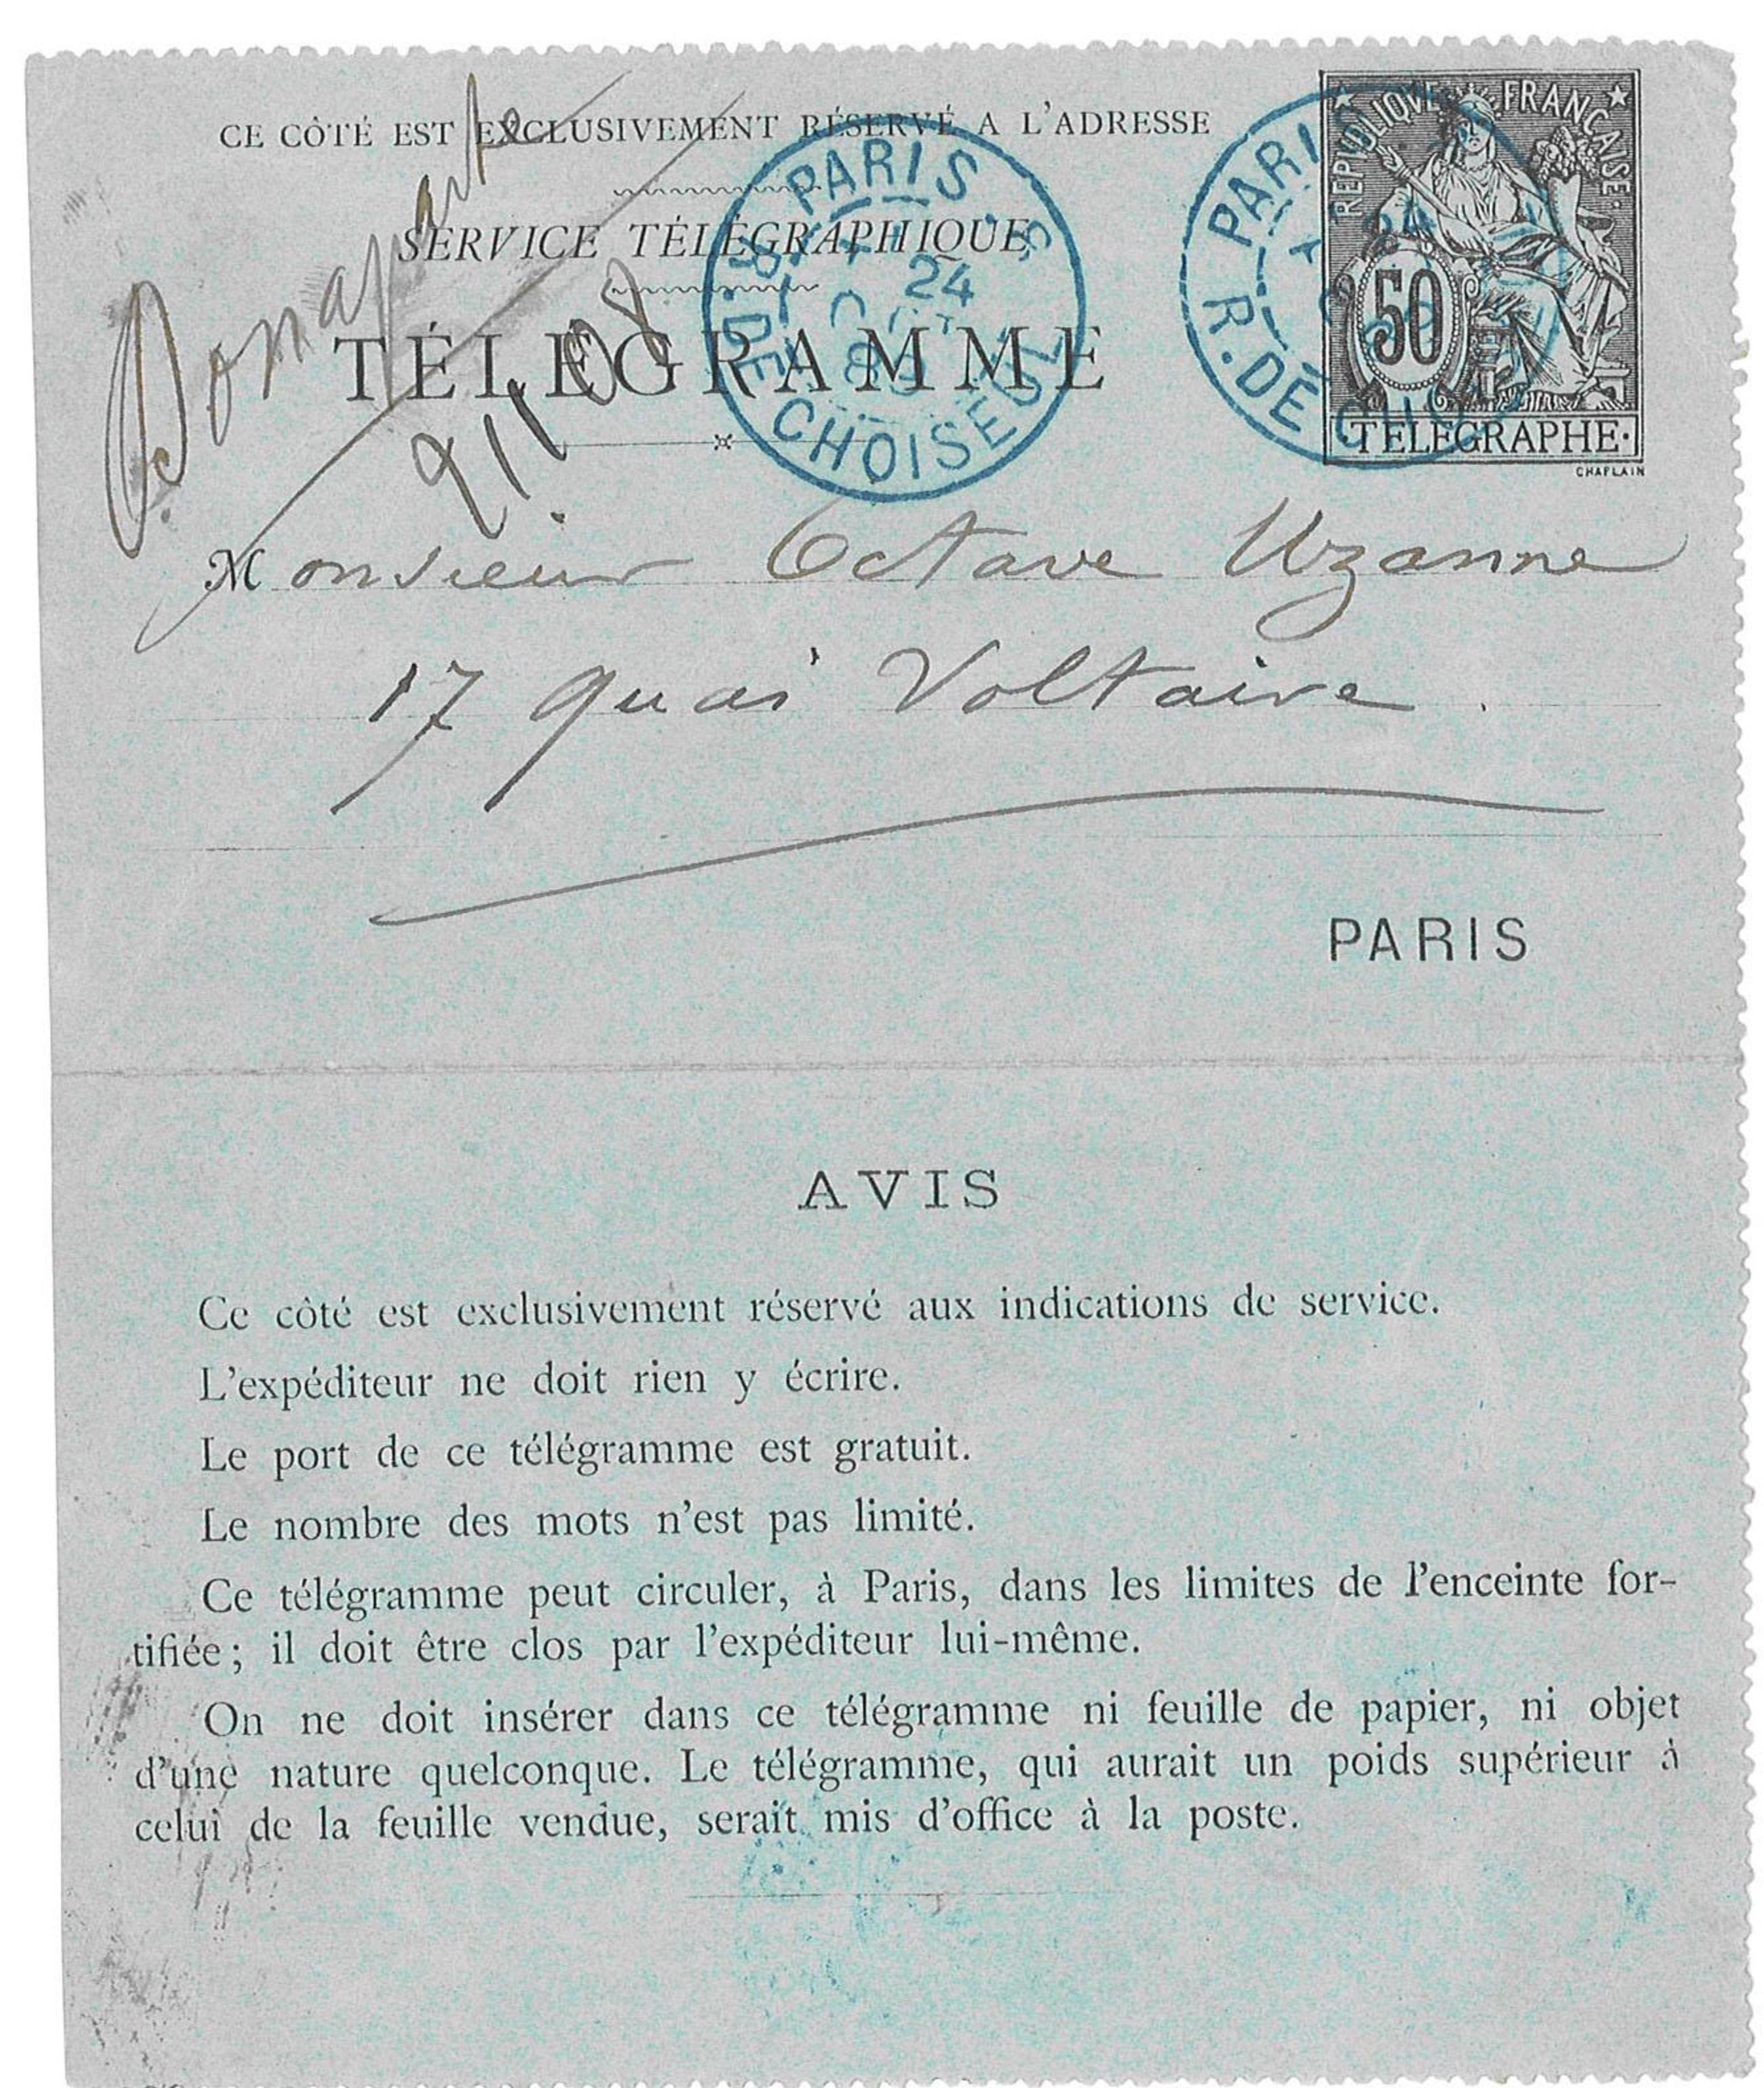 CE CÔTÉ EST EXCLUSIVEMENT RÉSERVÉ A L'ADRESSE
SERVICE TÉLÉGRAPHIQUE
TÉLÉGRAMME
Bonaparte
PARIS
24
R. DE CHOISEUL
PARIS
R. DE CHOISEUL
REPUBLIQUE FRANÇAISE
50
TELEGRAPHE
CHAPLAIN
Monsieur Octave Uzanne
17 quai Voltaire
PARIS
AVIS
Ce côté est exclusivement réservé aux indications de service.
L'expéditeur ne doit rien y écrire.
Le port de ce télégramme est gratuit.
Le nombre des mots n'est pas limité.
Ce télégramme peut circuler, à Paris, dans les limites de l'enceinte for-
tifiée; il doit être clos par l'expéditeur lui-même.
On ne doit insérer dans ce télégramme ni feuille de papier, ni objet
d'une nature quelconque. Le télégramme, qui aurait un poids supérieur à
celui de la feuille vendue, serait mis d'office à la poste.